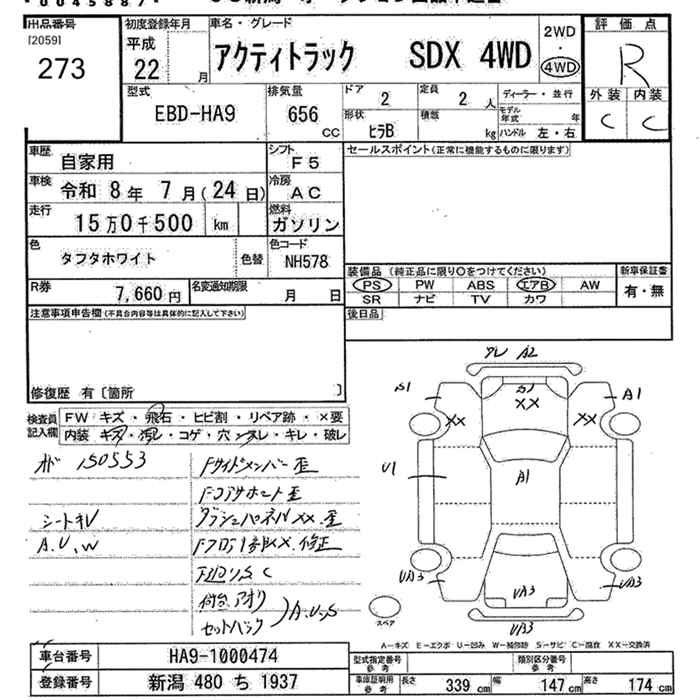 出品番号
[2059]
273
初度登録年月
平成 22 月
車名・グレード
アクティトラック SDX 4WD
2WD
・
4WD
評価点
R
外装 内装
C C
型式
EBD-HA9
排気量
656 CC
ドア 2
形状 ヒラB
定員 2 人
積載 kg
ディーラー・並行
モデル年式 年
ハンドル 左・右
車歴 自家用
シフト F5
車検 令和 8年 7月(24日)
冷房 AC
走行 15万0千500 km
燃料 ガソリン
色 タフタホワイト 色替
色コード NH578
R券 7,660円
名変通知期限 月 日
セールスポイント(正常に機能するものに限ります)
装備品(純正品に限り○をつけてください)
PS PW ABS エアB AW
SR ナビ TV カワ
新車保証書
有・無
注意事項申告欄(不具合内容等は具体的に記入して下さい)
後日品
修復歴 有〔箇所 〕
検査員記入欄
FW キズ・飛石・ヒビ割・リペア跡・×要
内装 キズ・汚レ・コゲ・穴・スレ・キレ・破レ
150553
Fサイドメンバー歪
Fコアサポート歪
シートキレ
ダッシュパネルXX.歪
A.U.W
Fフロア修正
荷台.アオリ
セットバック
A.U.S
A2
S1
A1
XX
XX
XX
U1
A1
UA3
UA3
UA3
UA3
スペア
A-キズ E-エクボ U-凹み W-補修跡 S-サビ C-腐食 XX-交換済
車台番号 HA9-1000474
登録番号 新潟 480 ち 1937
型式指定番号 参考
類別区分番号 参考
車庫証明用 参考
長さ 339 cm 幅 147 cm 高さ 174 cm